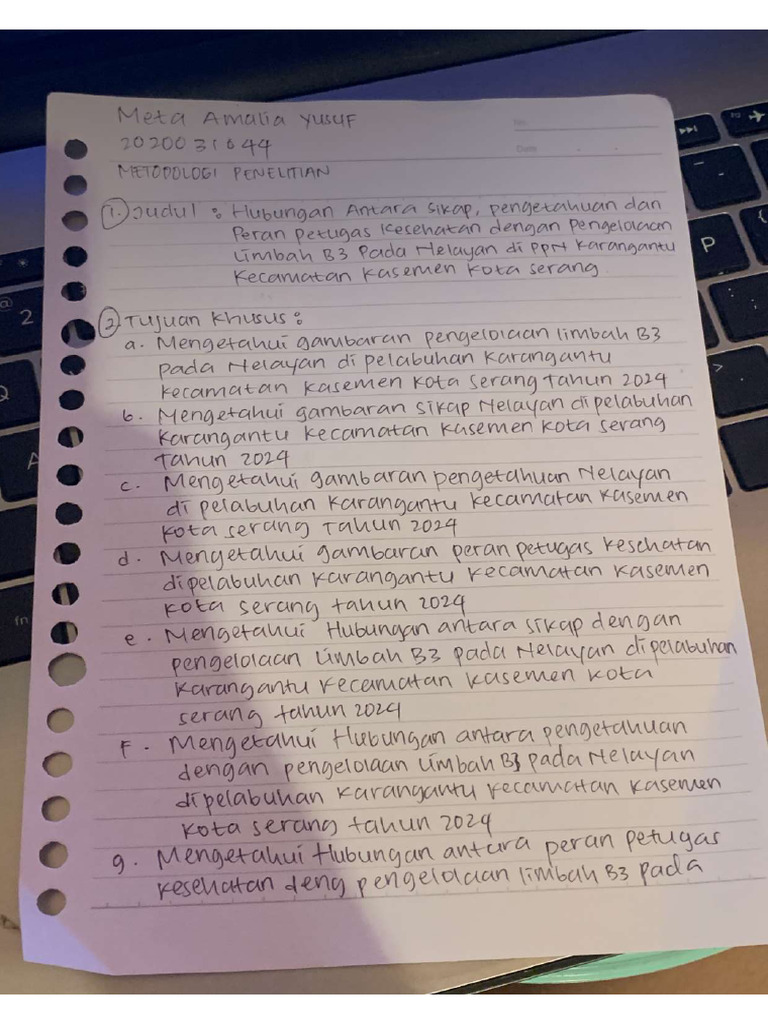 Meta Amalia Yusuf
2020031044
METODOLOGI PENELITIAN
1. Judul : Hubungan Antara Sikap, pengetahuan dan
Peran petugas Kesehatan dengan Pengelolaan
Limbah B3 Pada Nelayan di PPN Karangantu
Kecamatan Kasemen Kota Serang
2. Tujuan Khusus :
a. Mengetahui gambaran pengelolaan limbah B3
pada Nelayan di pelabuhan Karangantu
Kecamatan Kasemen Kota Serang Tahun 2024
b. Mengetahui gambaran sikap Nelayan di pelabuhan
Karangantu Kecamatan Kasemen Kota Serang
Tahun 2024
c. Mengetahui gambaran pengetahuan Nelayan
di pelabuhan Karangantu Kecamatan Kasemen
Kota Serang Tahun 2024
d. Mengetahui gambaran peran petugas Kesehatan
di pelabuhan Karangantu Kecamatan Kasemen
Kota Serang tahun 2024
e. Mengetahui Hubungan antara sikap dengan
pengelolaan Limbah B3 pada Nelayan di pelabuhan
Karangantu Kecamatan Kasemen Kota
Serang tahun 2024
F. Mengetahui Hubungan antara pengetahuan
dengan pengelolaan Limbah B3 pada Nelayan
di pelabuhan Karangantu Kecamatan Kasemen
Kota Serang tahun 2024
g. Mengetahui Hubungan antara peran petugas
Kesehatan deng pengelolaan limbah B3 pada